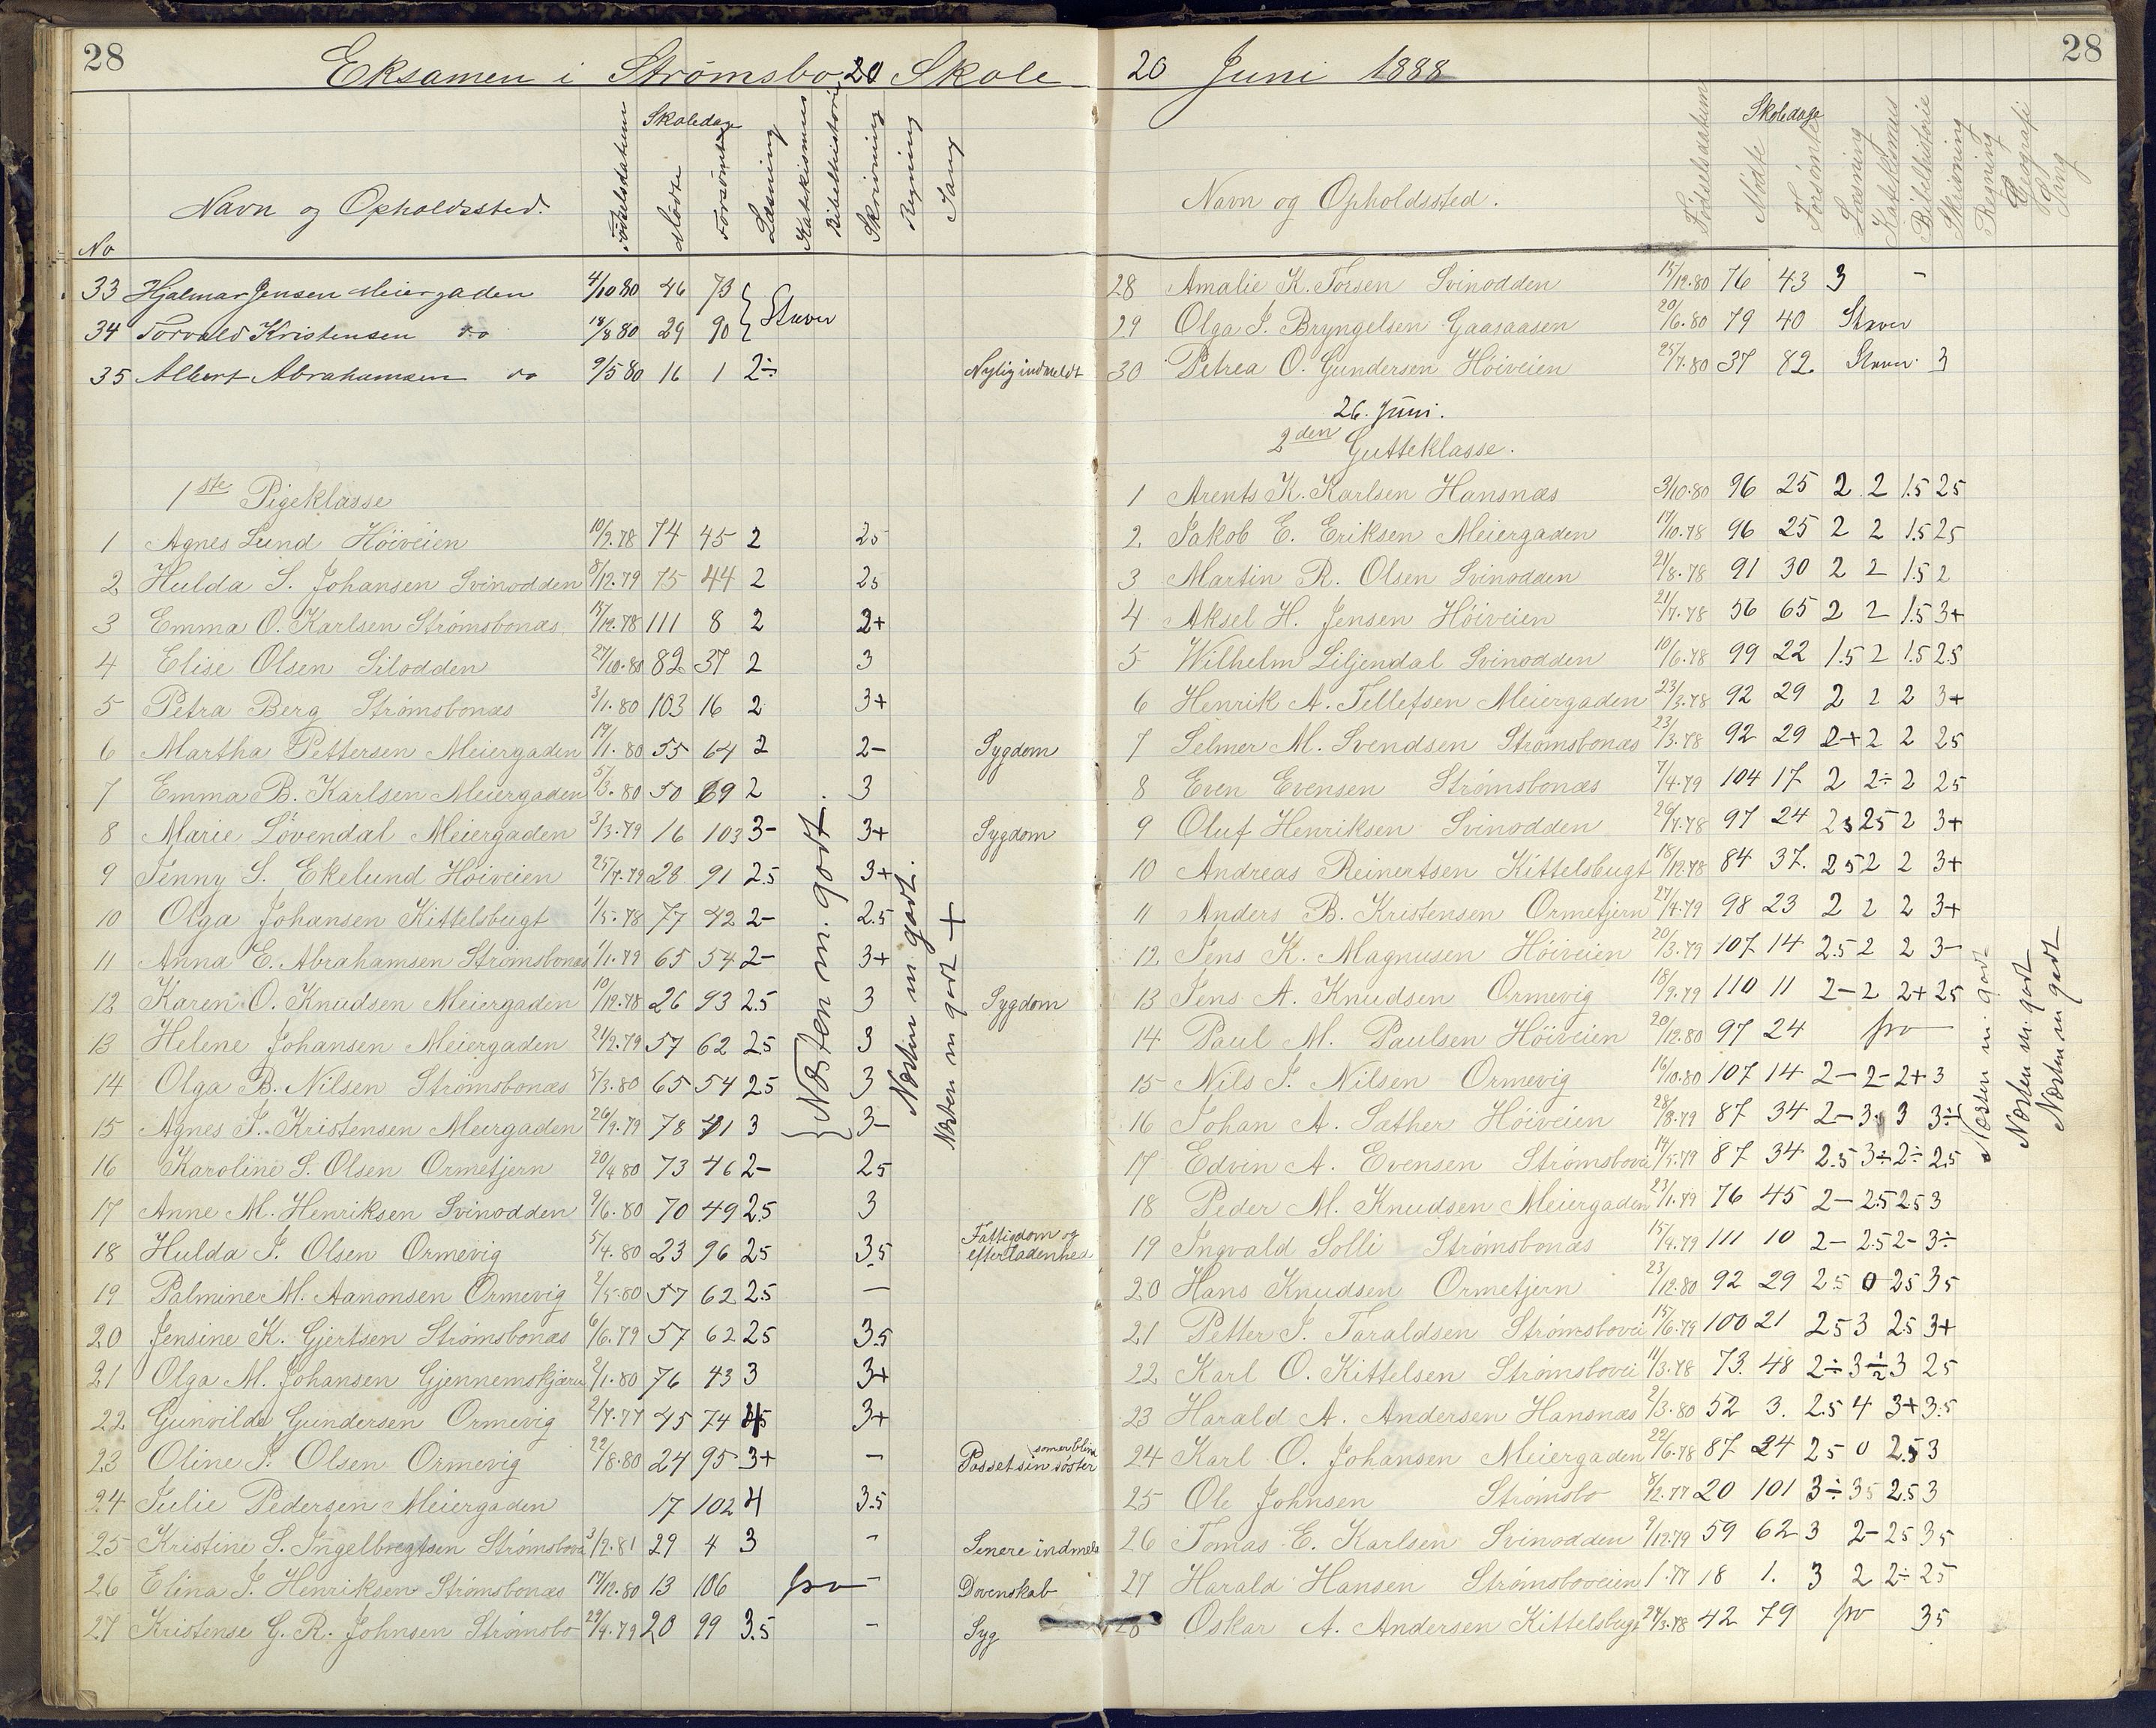 28
Eksamen i Strømsbo 20 Skole
No
Navn og Opholdssted.
Fødselsdatum
Skoledage
Mødte
Forsømte
Læsning
Katekismus
Bibelhistorie
Skrivning
Regning
Sang
33 Hjalmar Jensen Meiergaden 4/10 80 46 73 } Staver
34 Torvald Kristensen do 18/8 80 29 90
35 Albert Abrahamsen do 9/5 80 16 1 2÷ Nylig indmeldt
1ste Pigeklasse
1 Agnes Lund Höiveien 10/9.78 74 45 2 25
2 Hulda S. Johansen Svinodden 8/12.79 75 44 2 25
3 Emma O. Karlsen Strömsbonæs 15/12.78 111 8 2 2+
4 Elise Olsen Silodden 27/10.80 82 37 2 3
5 Petra Berg Strömsbonæs 3/1.80 103 16 2 3+
6 Martha Pettersen Meiergaden 19/11.80 55 64 2 2- Sygdom
7 Emma B. Karlsen Meiergaden 5/3.80 50 69 2 3
8 Marie Lövendal Meiergaden 3/3.79 16 103 3- 3+ Sygdom
9 Jenny S. Ekelund Höiveien 25/7.79 28 91 2.5 3+
10 Olga Johansen Kittelsbugt 1/5.78 77 42 2- 2.5
11 Anna E. Abrahamsen Strömsbonæs 1/1.79 65 54 2- 3+
12 Karen O. Knudsen Meiergaden 10/12.78 26 93 25 3 Sygdom
13 Helene Johansen Meiergaden 21/2.79 57 62 25 3
14 Olga B. Nilsen Strömsbonæs 5/3.80 65 54 25 3
15 Agnes J. Kristensen Meiergaden 26/9.79 78 41 3 3-
16 Karoline S. Olsen Ormetjern 20/4 80 73 46 2- 25
17 Anne M. Henriksen Svinodden 9/6.80 70 49 25 3
18 Hulda J. Olsen Ormevig 5/4.80 23 96 25 3.5 Fattigdom og efterladenhed
19 Palmine M. Aanonsen Ormevig 2/5.80 57 62 2.5 —
20 Jensine K. Gjertsen Strömsbonæs 6/6.79 57 62 25 3.5
21 Olga M. Johansen Gjennemskjæret 2/1.80 76 43 3 3+
22 Gunvilda Gundersen Ormevig 2/7.77 45 74 3+
23 Oline J. Olsen Ormevig 22/8.80 24 95 3+ — Passet sin söster som er blind
24 Julie Pedersen Meiergaden 17 102 4 3.5
25 Kristine S. Ingelbregtsen 3/12.81 29 4 3 - Senere indmeld
26 Elina J. Henriksen Strömsbonæs 17/12.80 13 106 frv - Dovenskab
27 Kristense G. R. Johnsen Strömsbo 29/4.79 20 99 3.5 - Syg
Næsten m. godt.
Næsten m godt.
Næsten m godt +
28
20 Juni 1888
Navn og Opholdssted.
Fødselsdatum
Skoledage
Mødte
Forsømte
Læsning
Katekismus
Bibelhistorie
Skrivning
Regning
Geografi
Sang
28 Amalie K. Torsen Svinodden 15/12.80 76 43 3 -
29 Olga J. Bryngelsen Gaasaasen 20/6.80 79 40 Staver
30 Petrea O. Gundersen Höiveien 25/7.80 37 82 Staver 3
26. Juni.
2den Gutteklasse.
1 Arents K. Karlsen Hansnæs 3/10.80 96 25 2 2 1.5 25
2 Jakob E. Eriksen Meiergaden 17/10.78 96 25 2 2 1.5 25
3 Martin R. Olsen Svinodden 21/8.78 91 30 2 2 1.5 2
4 Aksel H. Jensen Höiveien 21/7.78 56 65 2 2 1.5 3+
5 Wilhelm Liljendal Svinodden 10/6.78 99 22 1.5 2 1.5 2.5
6 Henrik A. Tellefsen Meiergaden 23/3.78 92 29 2 2 2 3+
7 Selmer M. Svendsen Strömsbonæs 23/3.78 92 29 2+ 2 2 25
8 Even Evensen Strömsbonæs 7/4.79 104 17 2 2÷ 2 25
9 Oluf Henriksen Svinodden 26/7.78 97 24 25 25 2 3+
10 Andreas Reinertsen Kittelsbugt 18/12.78 84 37. 25 2 2 3+
11 Anders B. Kristensen Ormetjern 27/4.79 98 23 2 2 2 3+
12 Jens K. Magnusen Höiveien 20/3.79 107 14 2.5 2 2 3-
13 Jens A. Knudsen Ormevig 18/9.79 110 11 2- 2 2+ 25
14 Paul M. Paulsen Höiveien 20/12.80 97 24 frv
15 Nils J. Nilsen Ormevig 16/10.80 107 14 2- 2- 2+ 3
16 Johan A. Sather Höiveien 28/8.79 87 34 2- 3 3 3÷
17 Edvin A. Evensen Strömsbovei 14/5.79 87 34 2.5 3÷ 2÷ 2.5
18 Peder M. Knudsen Meiergaden 23/1.79 76 45 2- 2.5 2.5 3
19 Ingvald Solli Strömsbonæs 15/4.79 111 10 2- 2.5 2- 3÷
20 Hans Knudsen Ormetjern 23/12.80 92 29 2.5 0 25 35
21 Petter J. Taraldsen Strömsbovei 15/6.79 100 21 25 3 2.5 3+
22 Karl O. Kittelsen Strömsbovei 11/3.78 73. 48 2÷ 3÷ 3 25
23 Harald A. Andersen Hansnæs 2/3.80 52 3. 2.5 4 3+ 3.5
24 Karl O. Johansen Meiergaden 22/6.78 87 34 25 0 2.5 3
25 Ole Johnsen Strömsbo 8/2.77 20 101 3÷ 35 2.5 3
26 Tomas E. Karlsen Svinodden 9/12.79 59 62 3 2- 25 35
27 Harald Hansen Strömsboveien 1.77 18 1. 3 2 2÷ 25
28 Oskar A. Andersen Kittelsbugt 24/3.78 42 79 frv 35
Næsten m. godt
Næsten m. godt
Næsten m godt